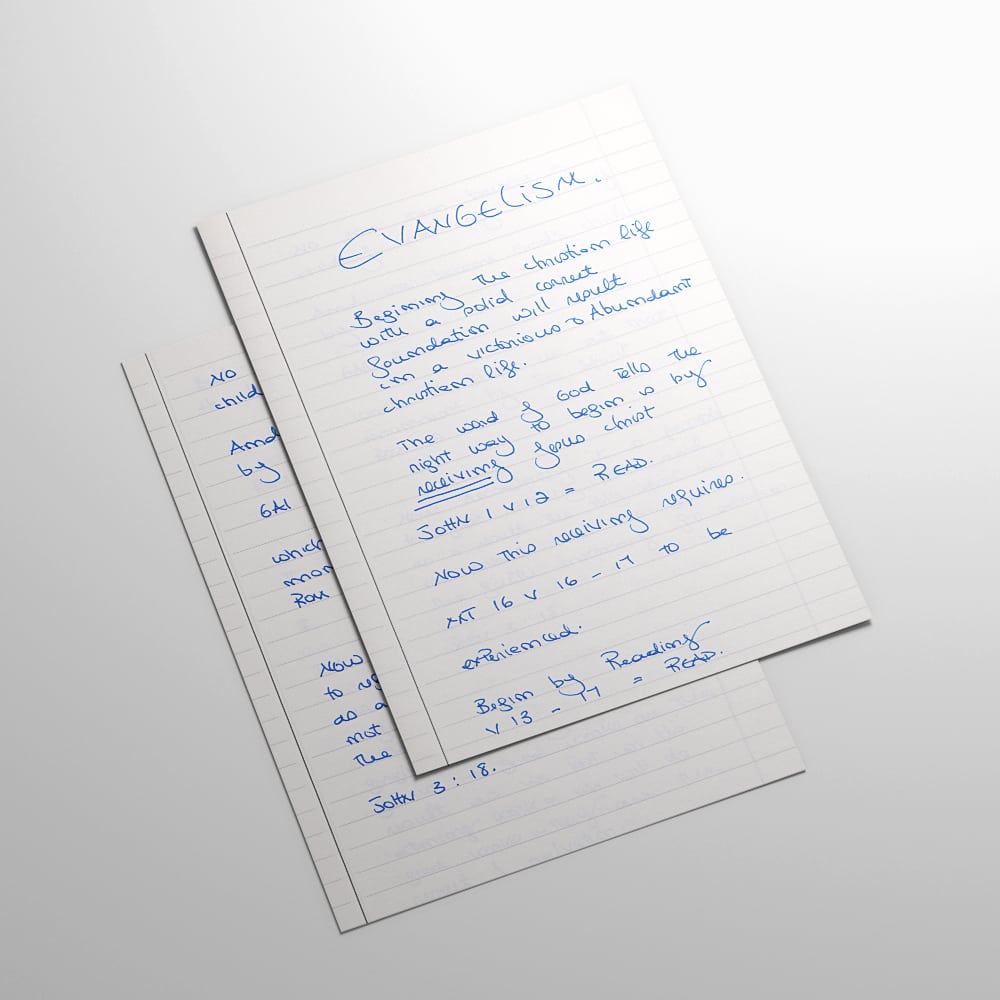 EVANGELISM.
Begining The christian life
with a solid correct
foundation will result
in a victorious & Abundant
christian life.
The word of God Tells The
right way to begin is by
receiving Jesus christ
JOHN 1 v 12 = READ.
Now This receiving requires.
MT 16 v 16 - 17 to be
experienced.
Begin by Reading
v 13 - 17 = READ.
NO
child
And
by
GAl
which
mor
Rom
NOW
to
as a
not
The
JOHN 3 : 18.